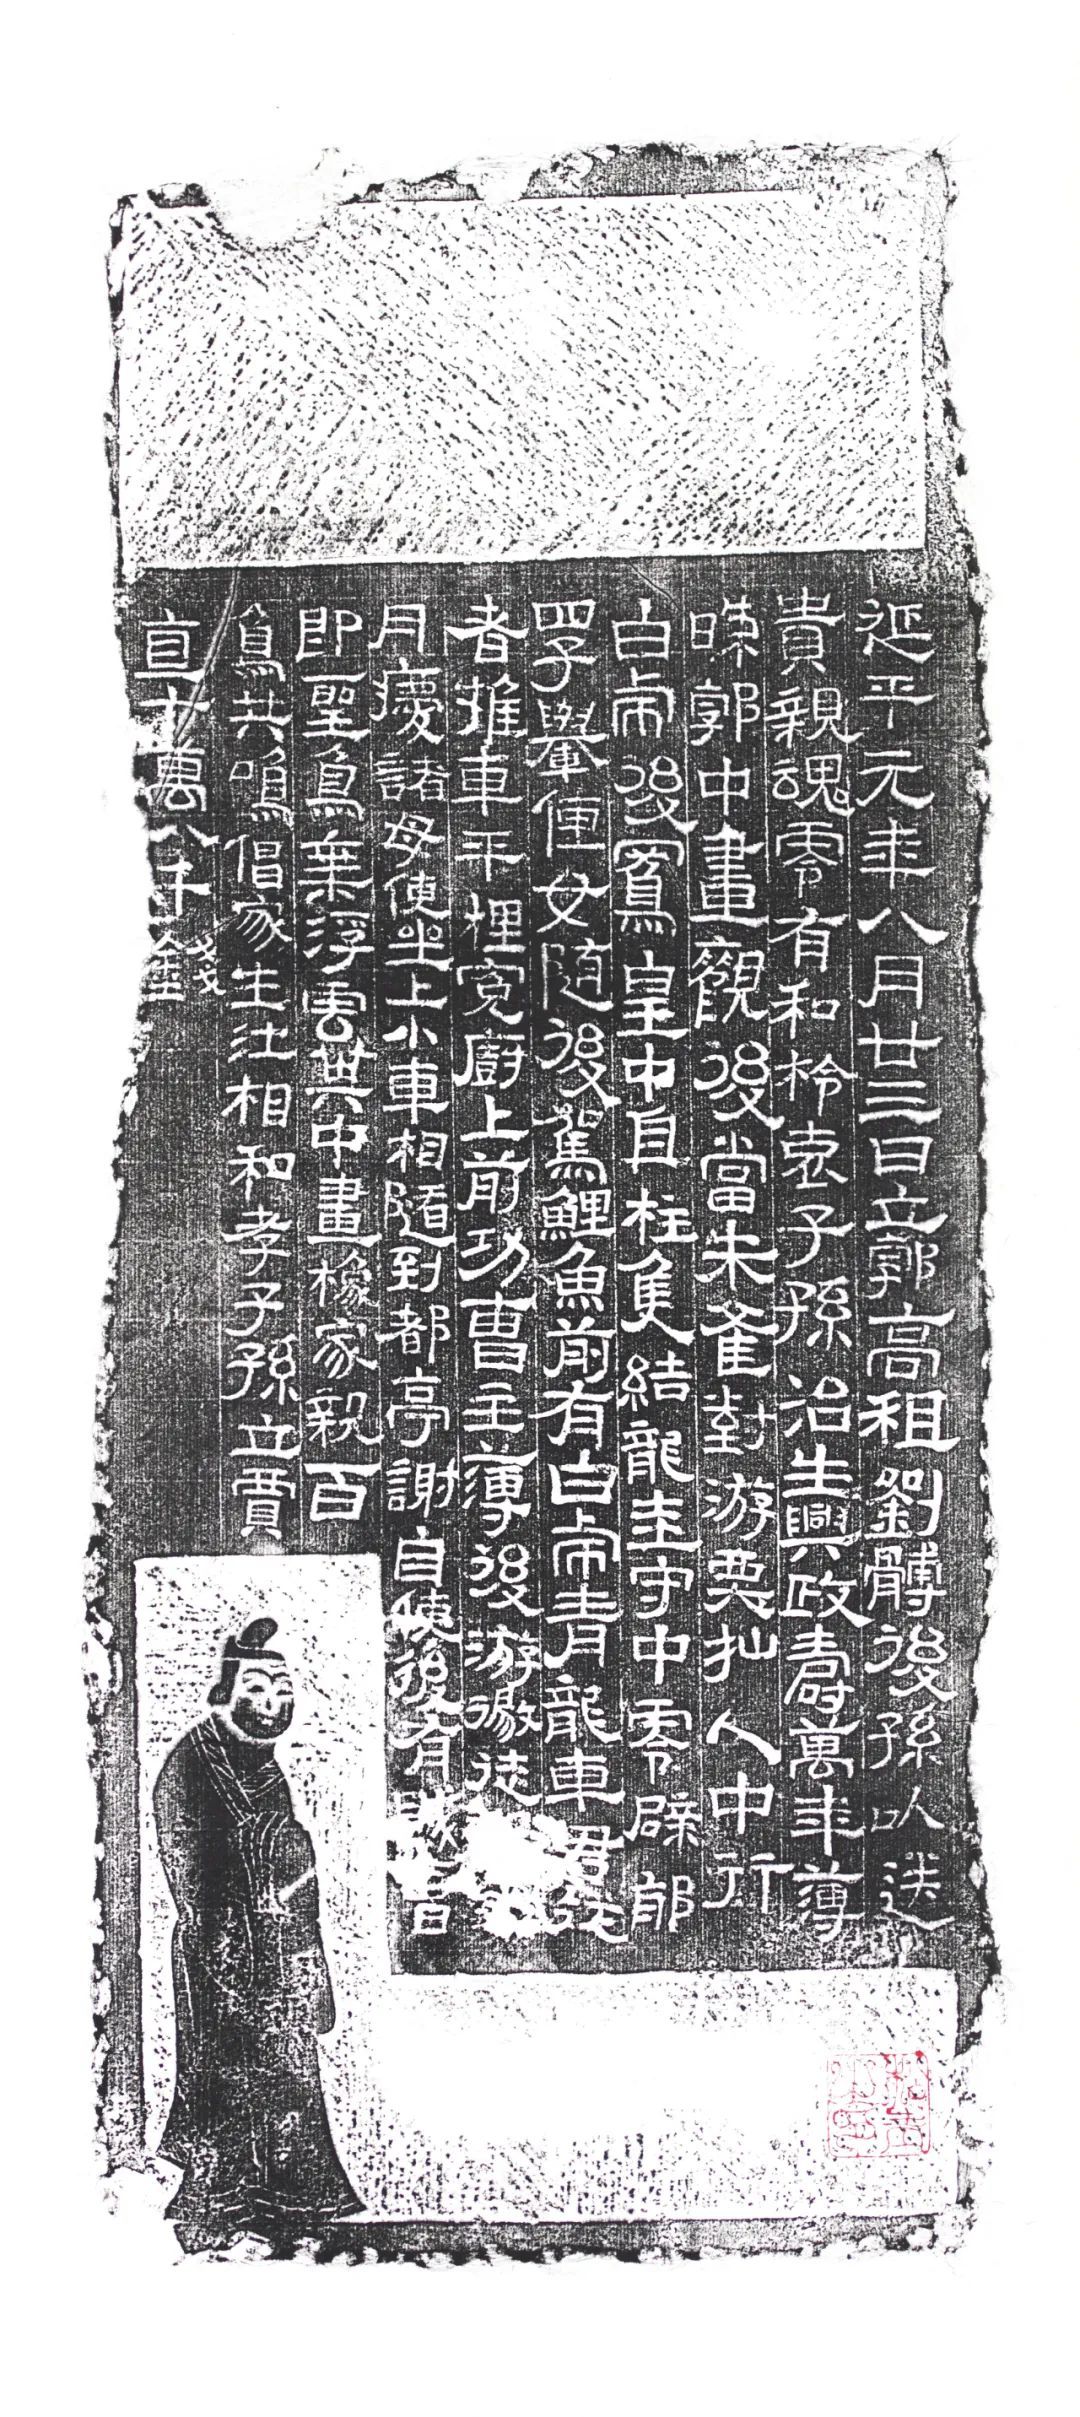 延平元年八月廿三日立郭高祖劉髆後孫以送
貴親魂零有和柃哀子孫治生興政壽萬年薄
踈郭中畫觀後當朱雀對游栗抛人中行
白虎後鳳皇中直柱隻結龍主守中零辟邪
學轝便女隨後駕鯉魚前有白虎青龍車君從
者推車平梩冤廚上前功曹主薄後游徼徒
月慶諸母使坐上小車相隨到都亭謝自便後有
即聖鳥乘浮雲其中畫橡家親百
鳥共鳴倡家生汢相和孝子孫立賈
直十萬八千錢